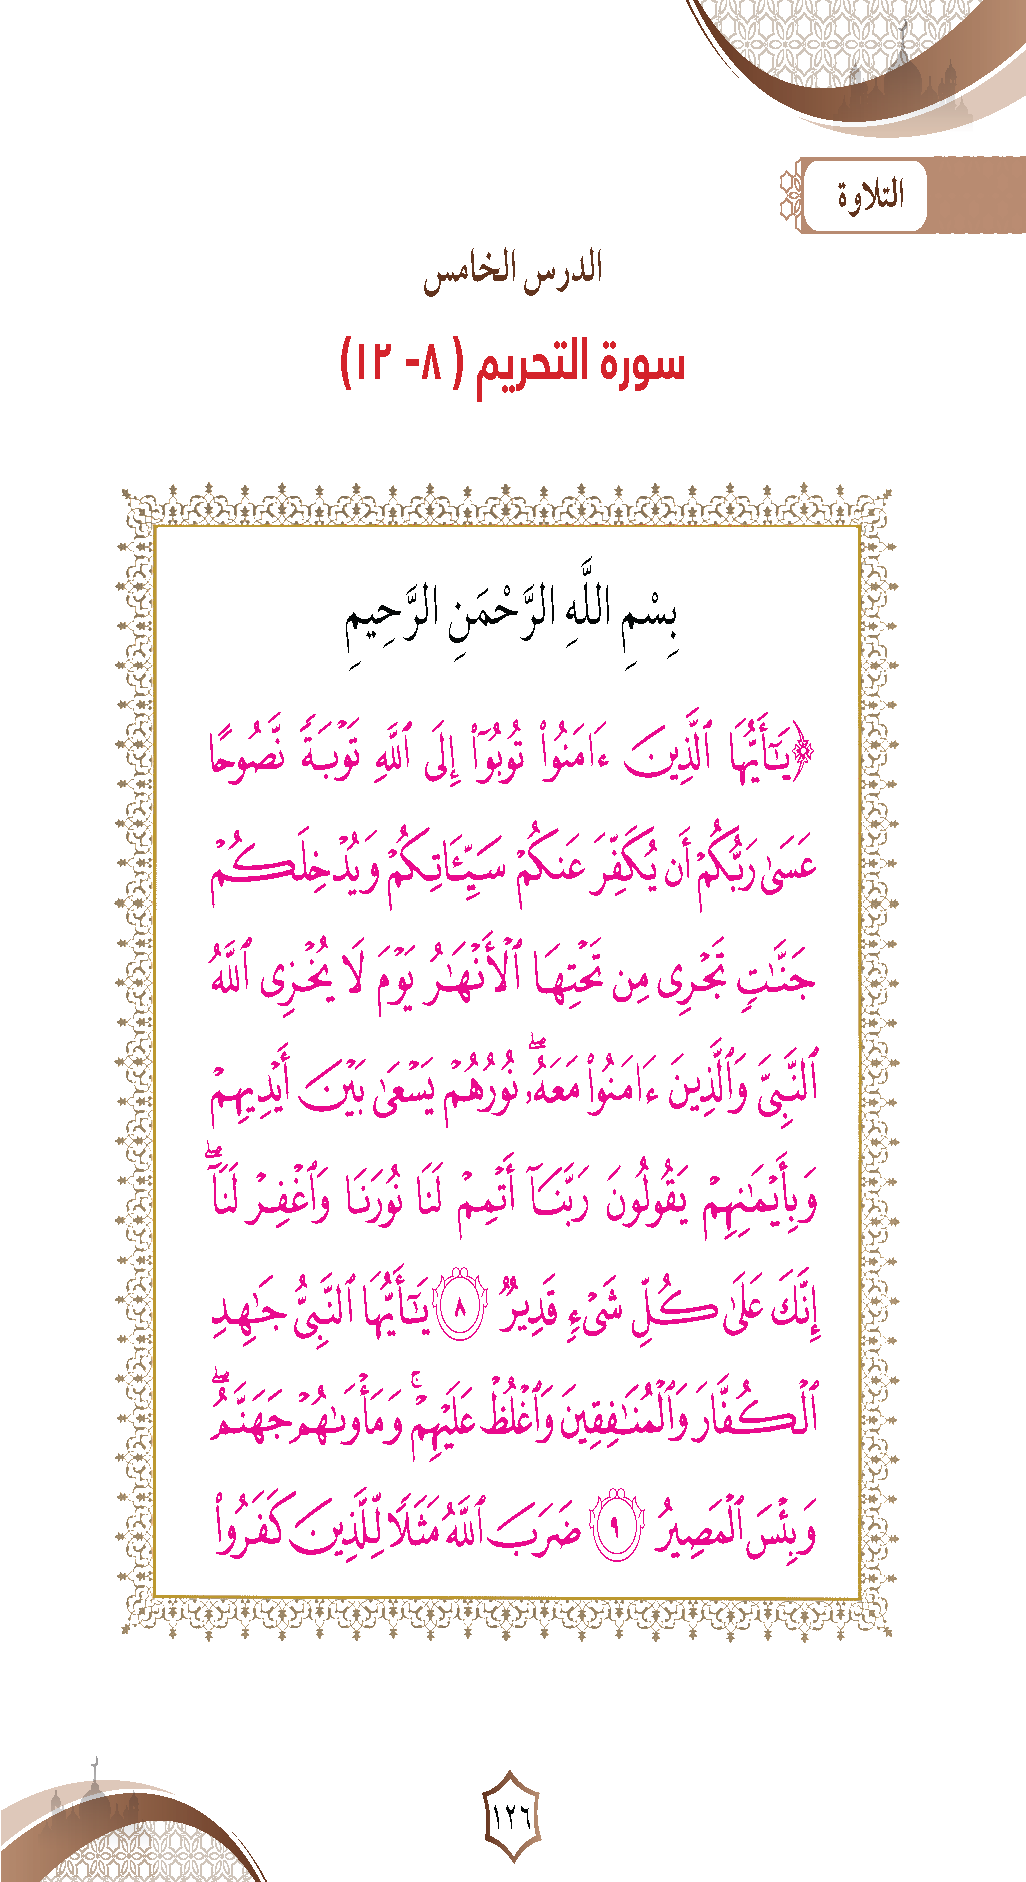 التلاوة
الدرس الخامس
سورة التحريم ( ٨- ١٢)
بِسْمِ اللَّهِ الرَّحْمَنِ الرَّحِيمِ
﴿يَٰٓأَيُّهَا ٱلَّذِينَ ءَامَنُوا۟ تُوبُوٓا۟ إِلَى ٱللَّهِ تَوْبَةً نَّصُوحًا
عَسَىٰ رَبُّكُمْ أَن يُكَفِّرَ عَنكُمْ سَيِّـَٔاتِكُمْ وَيُدْخِلَكُمْ
جَنَّٰتٍ تَجْرِى مِن تَحْتِهَا ٱلْأَنْهَٰرُ يَوْمَ لَا يُخْزِى ٱللَّهُ
ٱلنَّبِىَّ وَٱلَّذِينَ ءَامَنُوا۟ مَعَهُۥ ۖ نُورُهُمْ يَسْعَىٰ بَيْنَ أَيْدِيهِمْ
وَبِأَيْمَٰنِهِمْ يَقُولُونَ رَبَّنَآ أَتْمِمْ لَنَا نُورَنَا وَٱغْفِرْ لَنَآ ۖ
إِنَّكَ عَلَىٰ كُلِّ شَىْءٍ قَدِيرٌ ٨ يَٰٓأَيُّهَا ٱلنَّبِىُّ جَٰهِدِ
ٱلْكُفَّارَ وَٱلْمُنَٰفِقِينَ وَٱغْلُظْ عَلَيْهِمْ ۚ وَمَأْوَىٰهُمْ جَهَنَّمُ ۖ
وَبِئْسَ ٱلْمَصِيرُ ٩ ضَرَبَ ٱللَّهُ مَثَلًا لِّلَّذِينَ كَفَرُوا۟
١٢٦